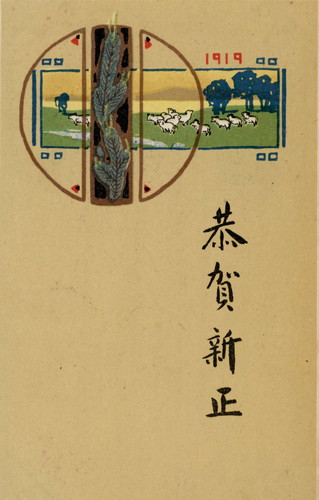 1919
恭賀新正